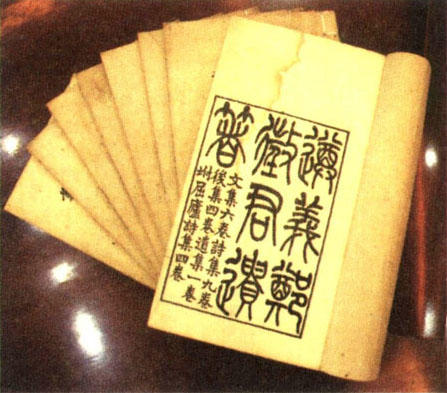 遵義鄭
徵君遺
著
文集六卷詩集九卷
後集四卷遺集一卷
坿屈廬詩集四卷